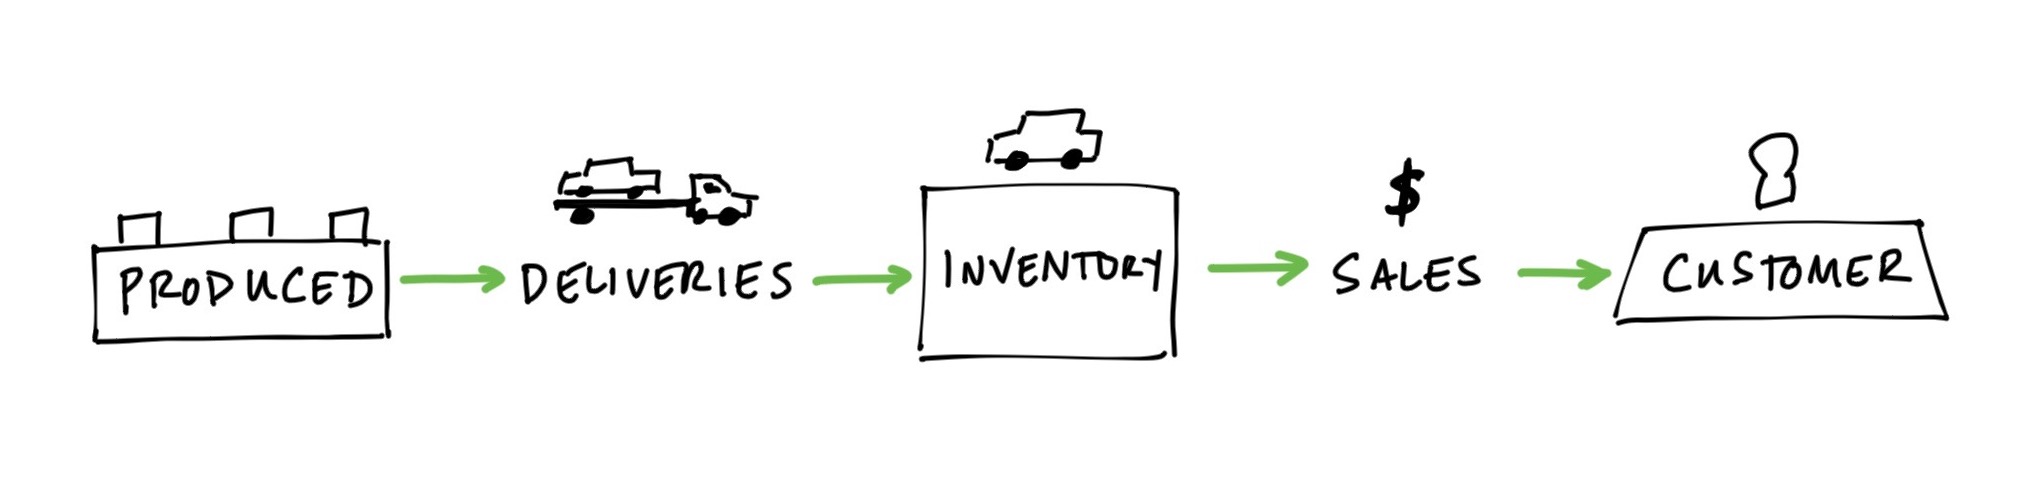 PRODUCED
DELIVERIES
INVENTORY
$
SALES
CUSTOMER